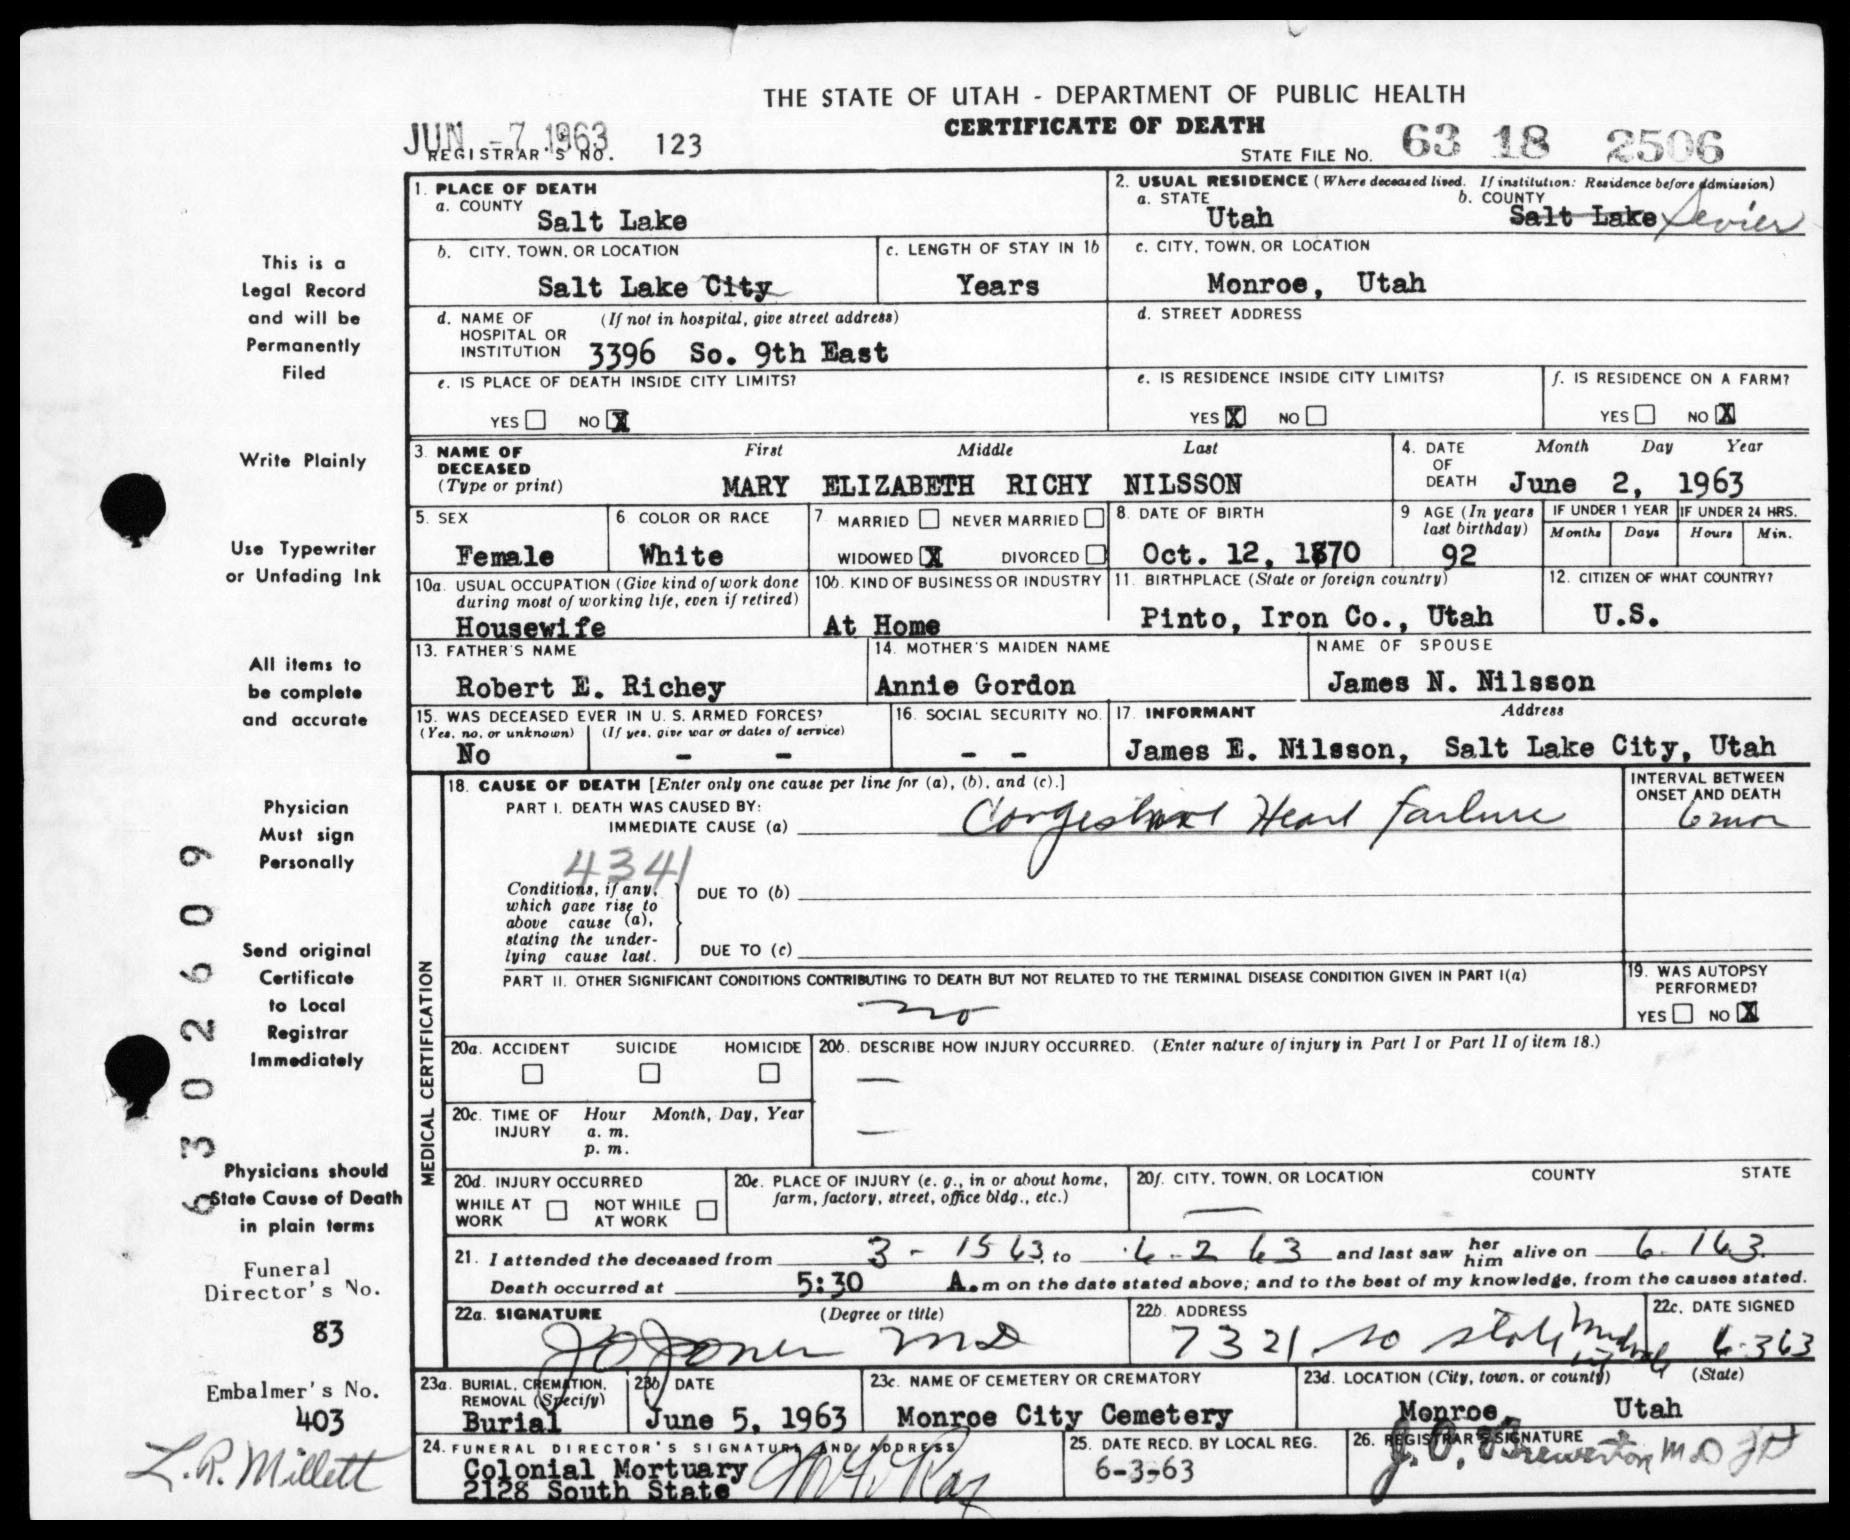 THE STATE OF UTAH - DEPARTMENT OF PUBLIC HEALTH
CERTIFICATE OF DEATH
JUN -7 1963
REGISTRAR'S NO. 123
STATE FILE NO. 63 18 2506
This is a
Legal Record
and will be
Permanently
Filed
Write Plainly
Use Typewriter
or Unfading Ink
All items to
be complete
and accurate
Physician
Must sign
Personally
Send original
Certificate
to Local
Registrar
Immediately
Physicians should
State Cause of Death
in plain terms
6302609
Funeral
Director's No.
83
Embalmer's No.
403
L.R. Millett
1. PLACE OF DEATH
a. COUNTY
Salt Lake
2. USUAL RESIDENCE (Where deceased lived. If institution: Residence before admission)
a. STATE b. COUNTY
Utah Salt Lake Sevier
b. CITY, TOWN, OR LOCATION
Salt Lake City
c. LENGTH OF STAY IN 1b
Years
c. CITY, TOWN, OR LOCATION
Monroe, Utah
d. NAME OF (If not in hospital, give street address)
HOSPITAL OR
INSTITUTION 3396 So. 9th East
d. STREET ADDRESS
e. IS PLACE OF DEATH INSIDE CITY LIMITS?
YES NO X
e. IS RESIDENCE INSIDE CITY LIMITS?
YES X NO
f. IS RESIDENCE ON A FARM?
YES NO X
3. NAME OF First Middle Last
DECEASED
(Type or print) MARY ELIZABETH RICHY NILSSON
4. DATE Month Day Year
OF
DEATH June 2, 1963
5. SEX
Female
6. COLOR OR RACE
White
7. MARRIED NEVER MARRIED
WIDOWED X DIVORCED
8. DATE OF BIRTH
Oct. 12, 1870
9 AGE (In years
last birthday)
92
IF UNDER 1 YEAR IF UNDER 24 HRS.
Months Days Hours Min.
10a. USUAL OCCUPATION (Give kind of work done
during most of working life, even if retired)
Housewife
10b. KIND OF BUSINESS OR INDUSTRY
At Home
11. BIRTHPLACE (State or foreign country)
Pinto, Iron Co., Utah
12. CITIZEN OF WHAT COUNTRY?
U.S.
13. FATHER'S NAME
Robert E. Richey
14. MOTHER'S MAIDEN NAME
Annie Gordon
NAME OF SPOUSE
James N. Nilsson
15. WAS DECEASED EVER IN U.S. ARMED FORCES?
(Yes, no, or unknown) (If yes, give war or dates of service)
No - -
16. SOCIAL SECURITY NO.
- -
17. INFORMANT Address
James E. Nilsson, Salt Lake City, Utah
MEDICAL CERTIFICATION
18. CAUSE OF DEATH [Enter only one cause per line for (a), (b), and (c).]
PART I. DEATH WAS CAUSED BY:
IMMEDIATE CAUSE (a) Congestive Heart Failure
INTERVAL BETWEEN
ONSET AND DEATH
6 mon
4341
Conditions, if any,
which gave rise to
above cause (a),
stating the under-
lying cause last.
DUE TO (b)
DUE TO (c)
PART II. OTHER SIGNIFICANT CONDITIONS CONTRIBUTING TO DEATH BUT NOT RELATED TO THE TERMINAL DISEASE CONDITION GIVEN IN PART I(a)
no
19. WAS AUTOPSY
PERFORMED?
YES NO X
20a. ACCIDENT SUICIDE HOMICIDE
20b. DESCRIBE HOW INJURY OCCURRED. (Enter nature of injury in Part I or Part II of item 18.)
20c. TIME OF Hour Month, Day, Year
INJURY a. m.
p. m.
20d. INJURY OCCURRED
WHILE AT NOT WHILE
WORK AT WORK
20e. PLACE OF INJURY (e. g., in or about home,
farm, factory, street, office bldg., etc.)
20f. CITY, TOWN, OR LOCATION COUNTY STATE
21. I attended the deceased from 3-15 63, to 6-2 63 and last saw her him alive on 6-1 63.
Death occurred at 5:30 A.m on the date stated above; and to the best of my knowledge, from the causes stated.
22a. SIGNATURE (Degree or title)
J O Jones MD
22b. ADDRESS
7321 so State Midvale
22c. DATE SIGNED
6-3 63
23a. BURIAL, CREMATION,
REMOVAL (Specify)
Burial
23b DATE
June 5, 1963
23c. NAME OF CEMETERY OR CREMATORY
Monroe City Cemetery
23d. LOCATION (City, town, or county) (State)
Monroe, Utah
24. FUNERAL DIRECTOR'S SIGNATURE AND ADDRESS
Colonial Mortuary
2128 South State
25. DATE RECD. BY LOCAL REG.
6-3-63
26. REGISTRAR'S SIGNATURE
J. P. Brewerton M.D